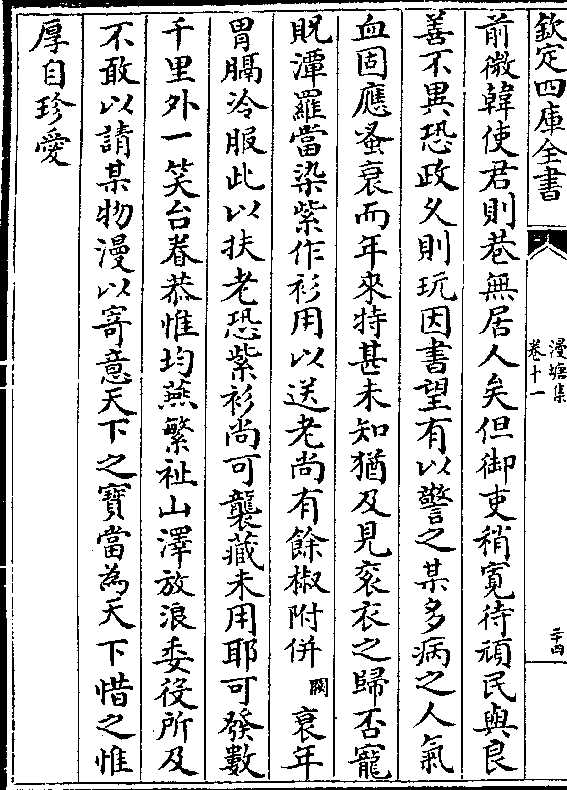 欽定四庫全書
漫塘集
卷十一
二十四
前徽韓使君則巷無居人矣但御吏稍寛待頑民與良
善不異恐政久則玩因書望有以警之某多病之人氣
血固應蚤衰而年來特甚未知猶及見衮衣之歸否寵
貺潭羅當染紫作衫用以送老尚有餘椒附併闕衰年
胃膈冷服此以扶老恐紫衫尚可襲藏未用耶可發數
千里外一笑台眷恭惟均燕繁祉山澤放浪委役所及
不敢以請某物漫以寄意天下之寶當為天下惜之惟
厚自珍愛